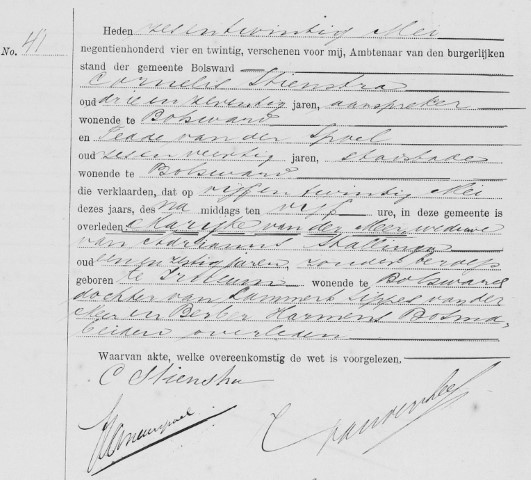 Heden zesentwintig Mei
No. 41
negentienhonderd vier en twintig, verschenen voor mij, Ambtenaar van den burgerlijken
stand der gemeente Bolsward
Cornelis Stienstra
oud drie en zeventig jaren, aanspreker
wonende te Bolsward
en Tedde van der Spoel
oud zes en veertig jaren,
wonende te Bolsward
die verklaarden, dat op vijf en twintig Mei
dezes jaars, des na middags ten vijf ure, in deze gemeente is
overleden Marijke van der Meer, weduwe
van Adrianus
oud een en zestig jaren, zonder beroep
geboren te wonende te Bolsward
dochter van Lammert Sipses van der
Meer en Berber Harmens Botma,
beiden overleden
Waarvan akte, welke overeenkomstig de wet is voorgelezen.
C Stienstra